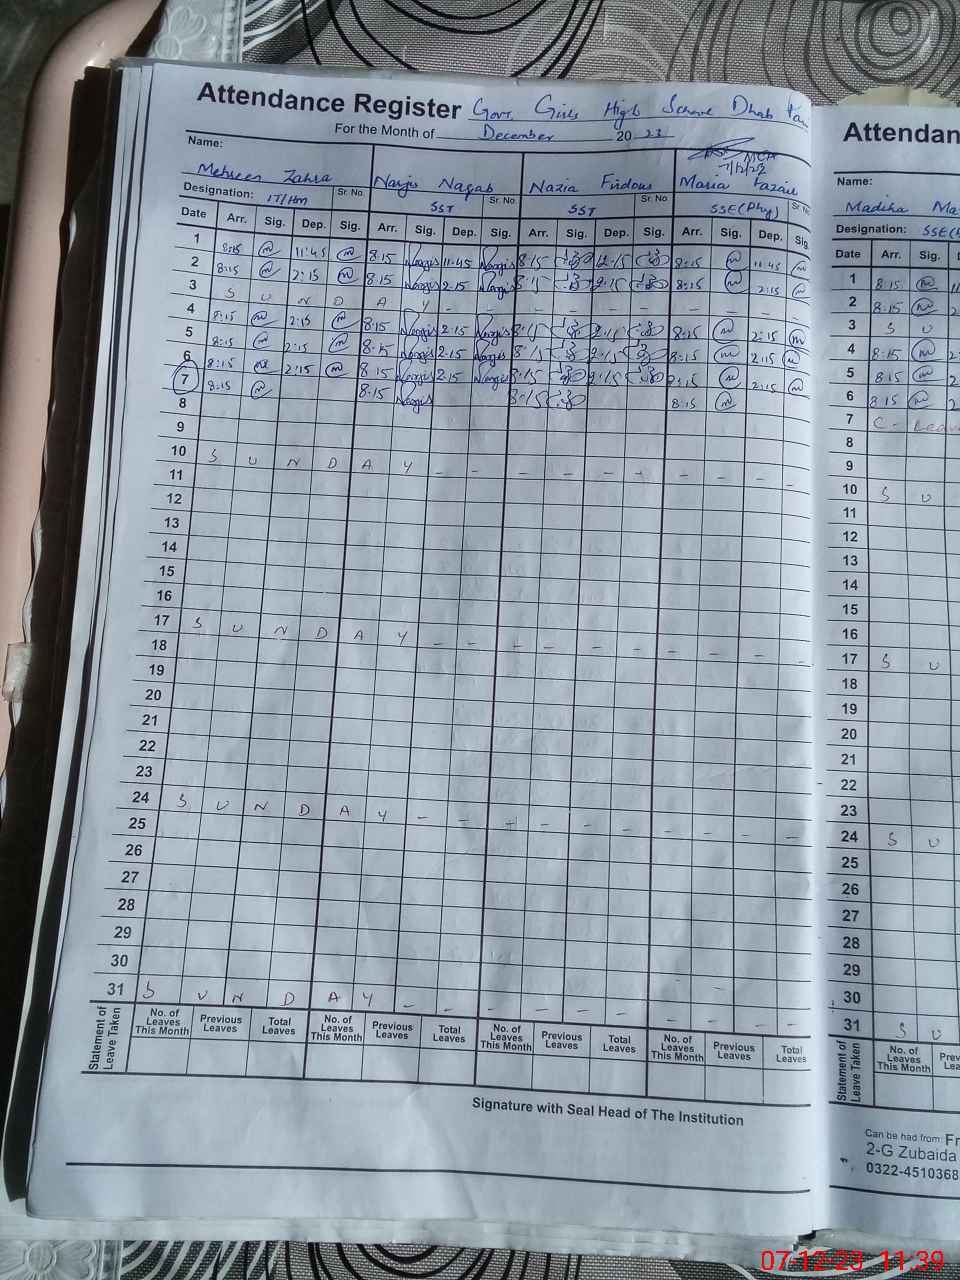 Attendance Register Govt. Girls High School Dhab
For the Month of December 2023
MCA
7/12/23
Name:
Mehreen Zahra Narjis Naqab Nazia Firdous Maria Fazail
Designation: Sr. No. SST Sr. No. SST Sr. No. SSE(Phy) Sr. No.
Date Arr. Sig. Dep. Sig. Arr. Sig. Dep. Sig. Arr. Sig. Dep. Sig. Arr. Sig. Dep. Sig.
1 8:15 11:45 8:15 Narjis 11.45 Narjis 8:15 12.15 8:15 11:45
2 8:15 2:15 8.15 Narjis 2.15 Narjis 8:15 2:15 8:15 2:15
3 S U N D A Y - - - - - - - - - -
4 8:15 2:15 8.15 Narjis 2.15 Narjis 8:15 2:15 8:15 2:15
5 8:15 2:15 8.15 Narjis 2.15 Narjis 8:15 2:15 8:15 2:15
6 8:15 2:15 8.15 Narjis 2.15 Narjis 8:15 2:15 8:15 2:15
7 8:15 8.15 Narjis 8:15 8:15
8
9
10 S U N D A Y - - - - - - - - - -
11
12
13
14
15
16
17 S U N D A Y - - - - - - - - - -
18
19
20
21
22
23
24 S U N D A Y - - - - - - - - - -
25
26
27
28
29
30
31 S U N D A Y - - - - - - - - - -
Statement of Leave Taken
No. of Leaves This Month Previous Leaves Total Leaves No. of Leaves This Month Previous Leaves Total Leaves No. of Leaves This Month Previous Leaves Total Leaves No. of Leaves This Month Previous Leaves Total Leaves
Signature with Seal Head of The Institution
Attendan
Name:
Madiha
Designation: SSE
Date Arr. Sig.
1 8:15
2 8:15
3 S U
4 8:15
5 8:15
6 8:15
7 C-Leave
8
9
10 S U
11
12
13
14
15
16
17 S U
18
19
20
21
22
23
24 S U
25
26
27
28
29
30
31 S U
Statement of Leave Taken
No. of Leaves This Month
Can be had from: Fr
2-G Zubaida
0322-4510368
07-12-23 11:39